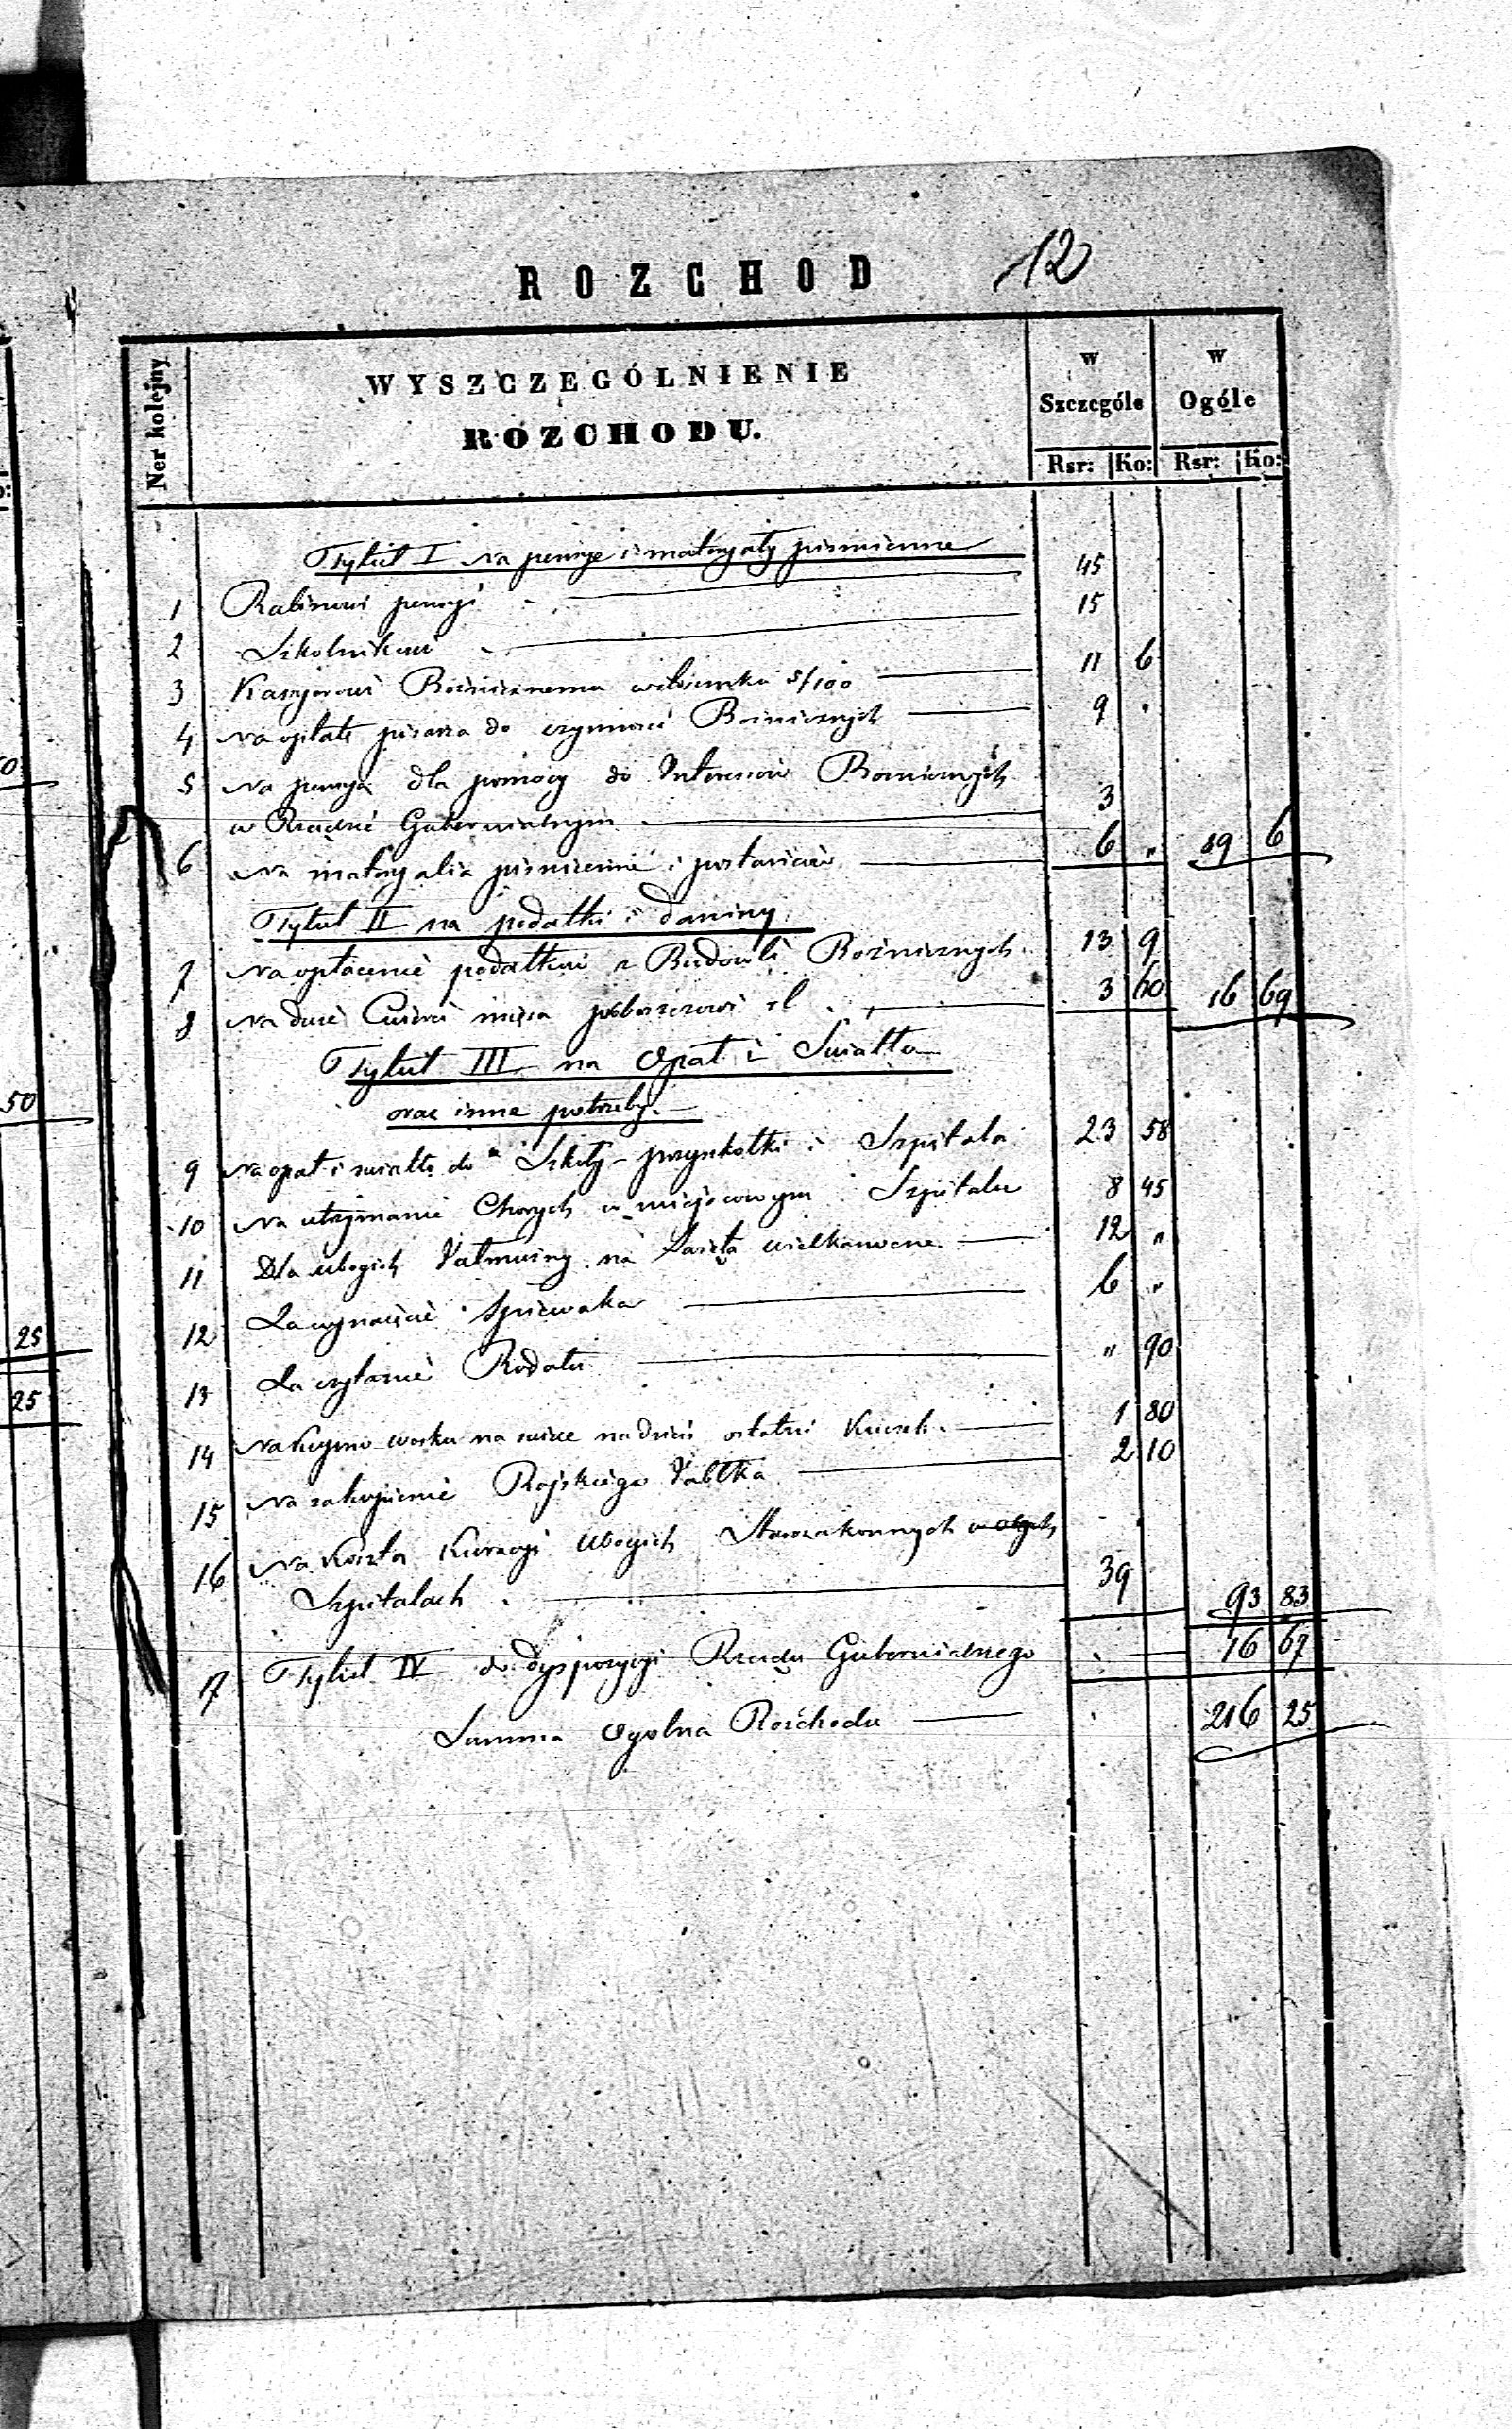 ROZCHOD 12
Ner kolejny
WYSZCZEGÓLNIENIE
ROZCHODU.
w Szczególe
w Ogóle
Rsr: Ko: Rsr: Ko:
Tytuł I Na pensye i materyały piśmienne
1 Rabinowi pensyi 45
2 Szkolnikowi 15
3 Kassyerowi Bożnicznemu 5/100 11 6
4 Na opłatę pisarza do czynności Bożnicznych 9
5 Na pensyą dla pomocy do Interessów Bożnicznych
w Rządzie Gubernialnym 3
6 Na materyalia piśmienne i posłańców 6 „ 89 6
Tytuł II na podatki i daniny
7 Na opłacenie podatków z Budowli Bożnicznych 13 9
8 Na mięsa proboszczowi 3 60 16 69
Tytuł III na Opał i Światło
oraz inne potrzeby.
9 Na opał i światło do Szkoły - przyszkółki i Szpitala 23 58
10 Na utrzymanie Chorych w miejscowym Szpitalu 8 45
11 Dla ubogich Jałmużny na święta wielkanocne 12 „
12 Za wynajęcie śpiewaka 6 „
13 Za czytanie Rodału „ 90
14 Na kupno wosku na świce na dzień ostatni Kuczek 1 80
15 Na zakupienie Rajskiego Jabłka 2 10
16 Na Koszta Kuracyi Ubogich Starozakonnych w
Szpitalach 39 93 83
17 Tytuł IV do dyspozycyi Rządu Gubernialnego 16 67
Summa Ogolna Rozchodu 216 25
50
25
25